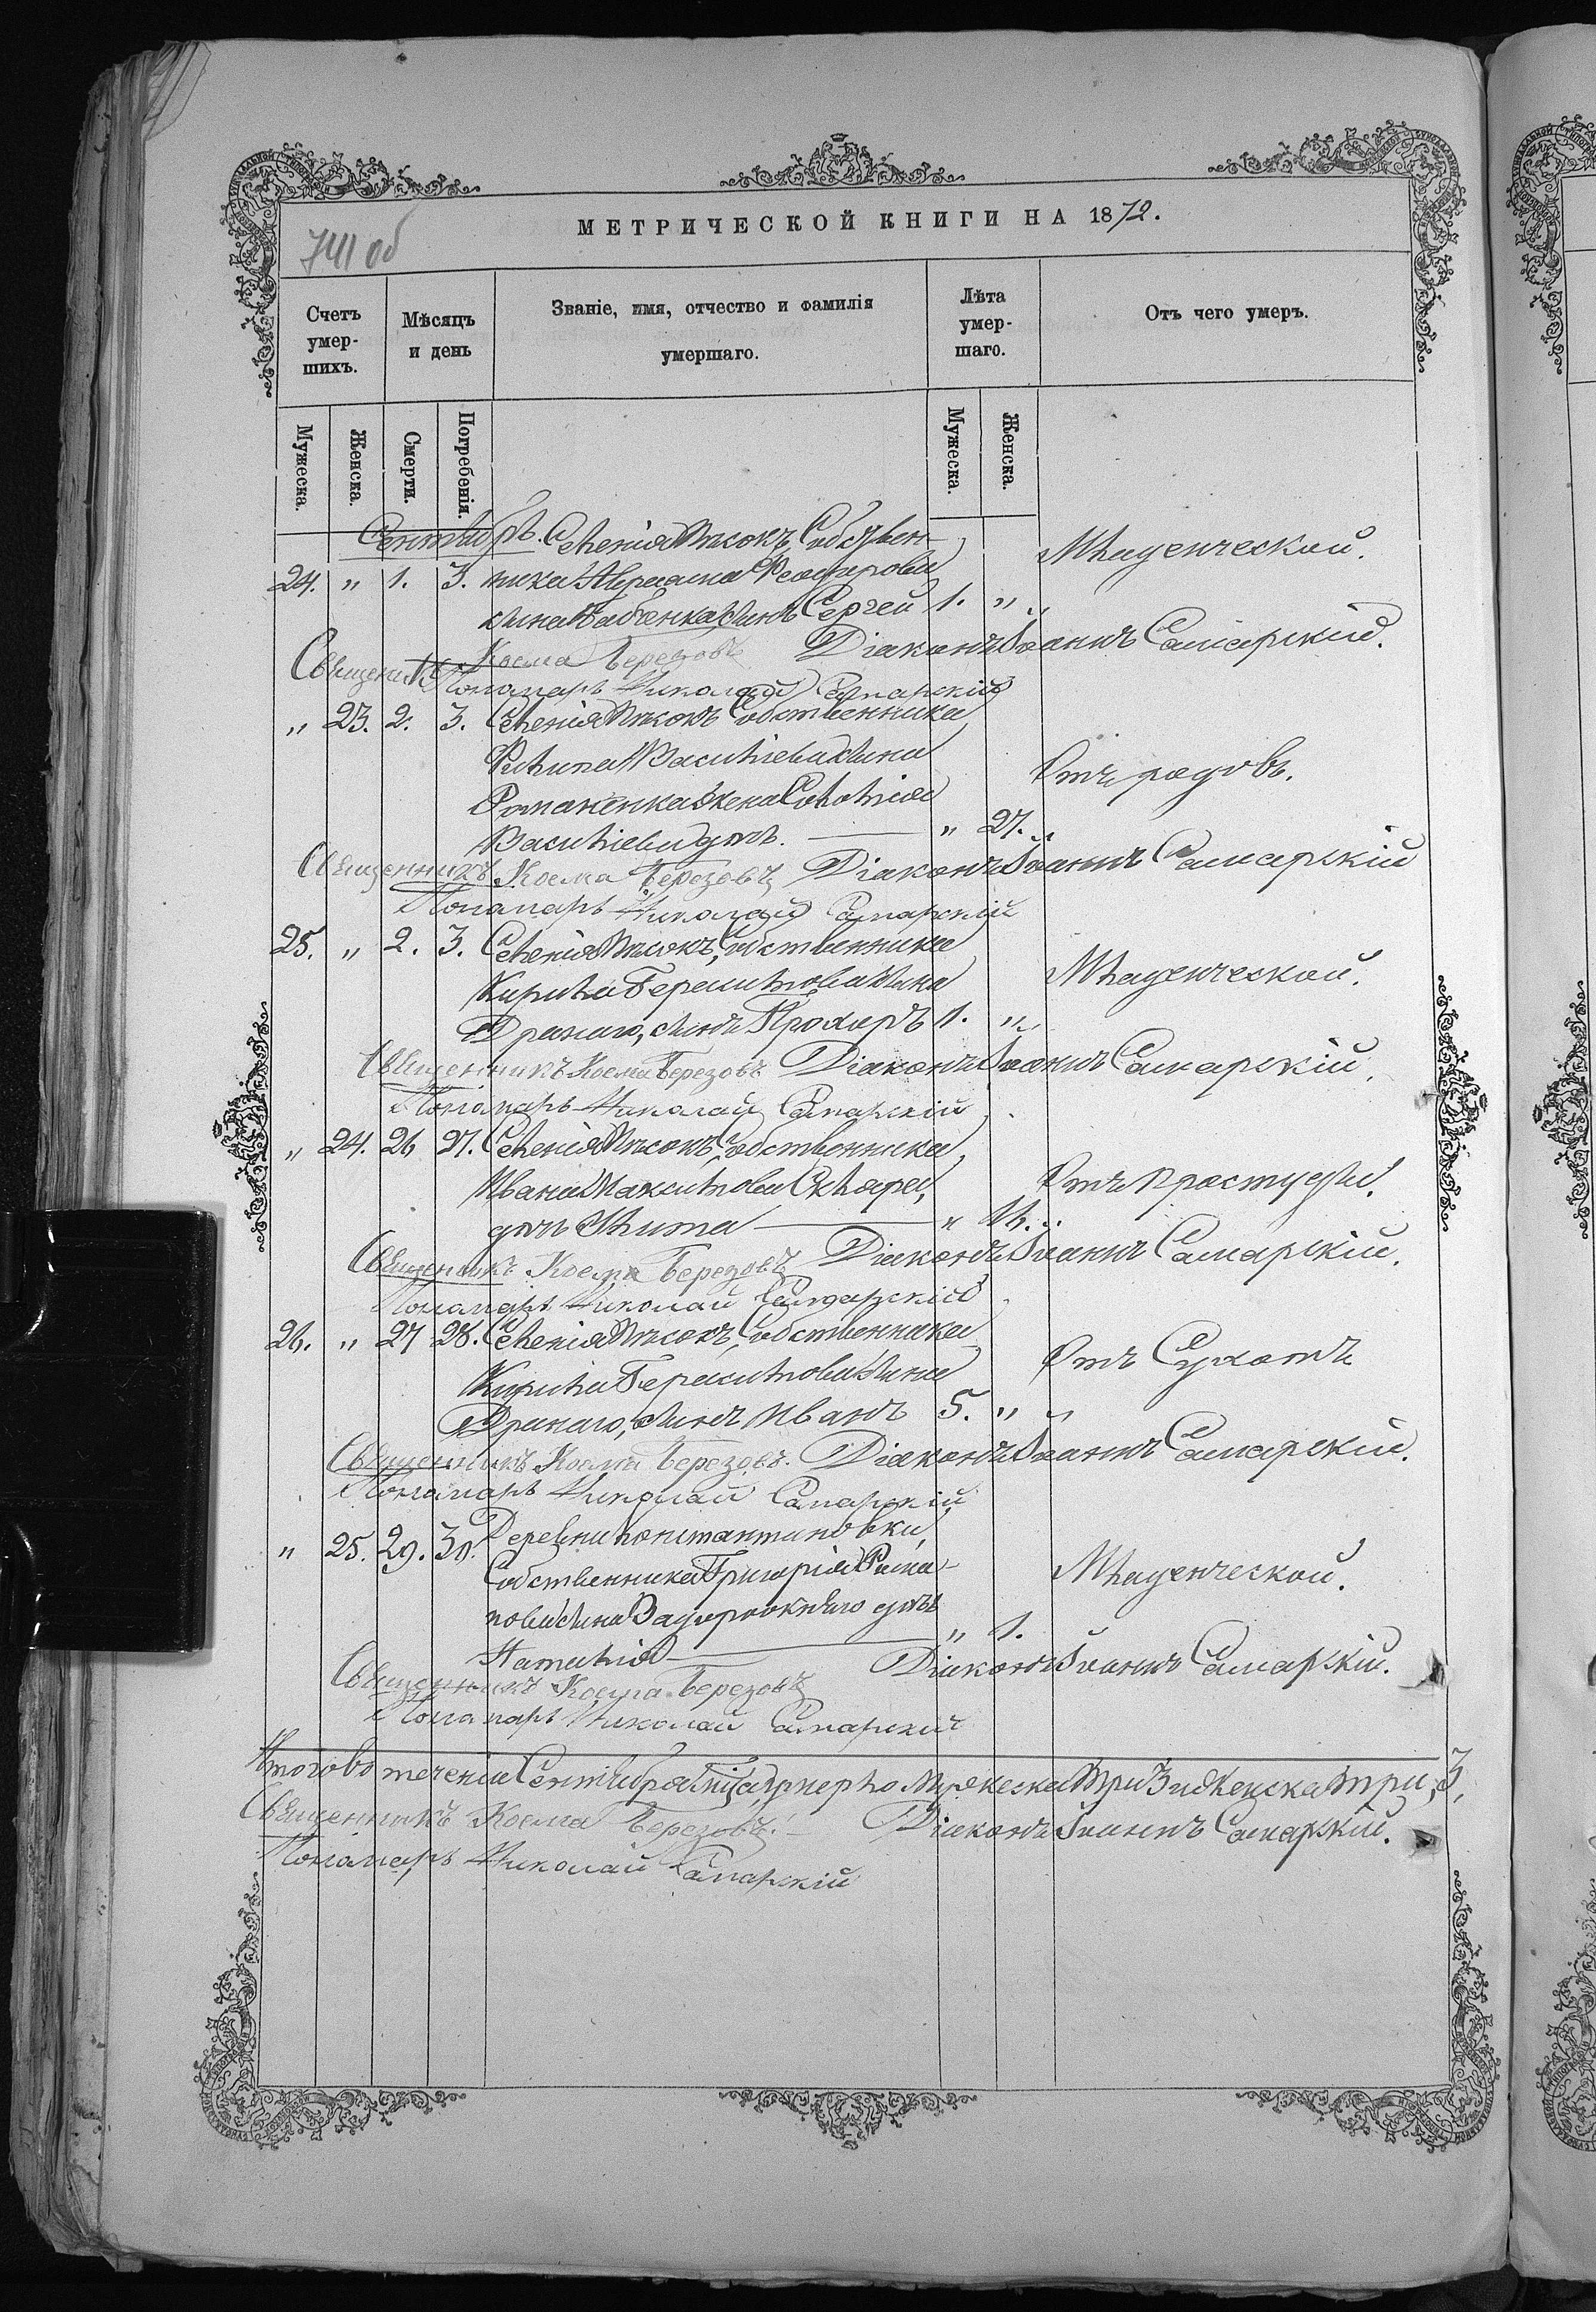 741 об
МЕТРИЧЕСКОЙ КНИГИ НА 1872.
Счетъ умер-шихъ.
Мѣсяцъ и день
Званіе, имя, отчество и фамилія умершаго.
Лѣта умер-шаго.
Отъ чего умеръ.
Мужеска. Женска. Смерти. Погребенія. Мужеска. Женска.
Сентябрь. Селенія Пѣсокъ, Собствен-
24. " 1. 3. ника Авраама Феодорова Младенческой.
сына Бабенка сынъ Сергей 1. "
Священникъ Косма Березовъ Діаконъ Іоаннъ Самарскій.
Пономарь Николай Самарскій
" 23. 2. 3. Селенія Пѣсокъ Собственника
Филипа Васильева сына Отъ родовъ.
Романенка жена Соломія
Васильева дочь. " 27.
Священникъ Косма Березовъ Діаконъ Іоаннъ Самарскій
Пономарь Николай Самарскій
25. " 2. 3. Селенія Пѣсокъ, Собственника
Кирила Герасимова сына Младенческой.
Дранаго, сынъ Прохоръ 1. "
Священникъ Косма Березовъ Діаконъ Іоаннъ Самарскій.
Пономарь Николай Самарскій
" 24. 26 27. Селенія Пѣсокъ, Собственника
Ивана Максимова Скляра, Отъ простуды.
дочь " 16.
Священникъ Косма Березовъ Діаконъ Іоаннъ Самарскій.
Пономарь Николай Самарскій
26. " 27 28. Селенія Пѣсокъ, Собственника
Кирила Герасимова сына Отъ Сухотъ
Дранаго, сынъ Иванъ 5. "
Священникъ Косма Березовъ. Діаконъ Іоаннъ Самарскій.
Пономарь Николай Самарскій
" 25. 29. 30. Деревни Константиновки,
Собственника Григорія Рома-
нова сына Задорожняго дочь Младенческой.
Наталія " 1.
Священникъ Косма Березовъ Діаконъ Іоаннъ Самарскій.
Пономарь Николай Самарскій
Итого во теченіи Сентября м-ца, умерло мужеска три 3 и женска три, 3,
Священникъ Косма Березовъ. Діаконъ Іоаннъ Самарскій.
Пономарь Николай Самарскій